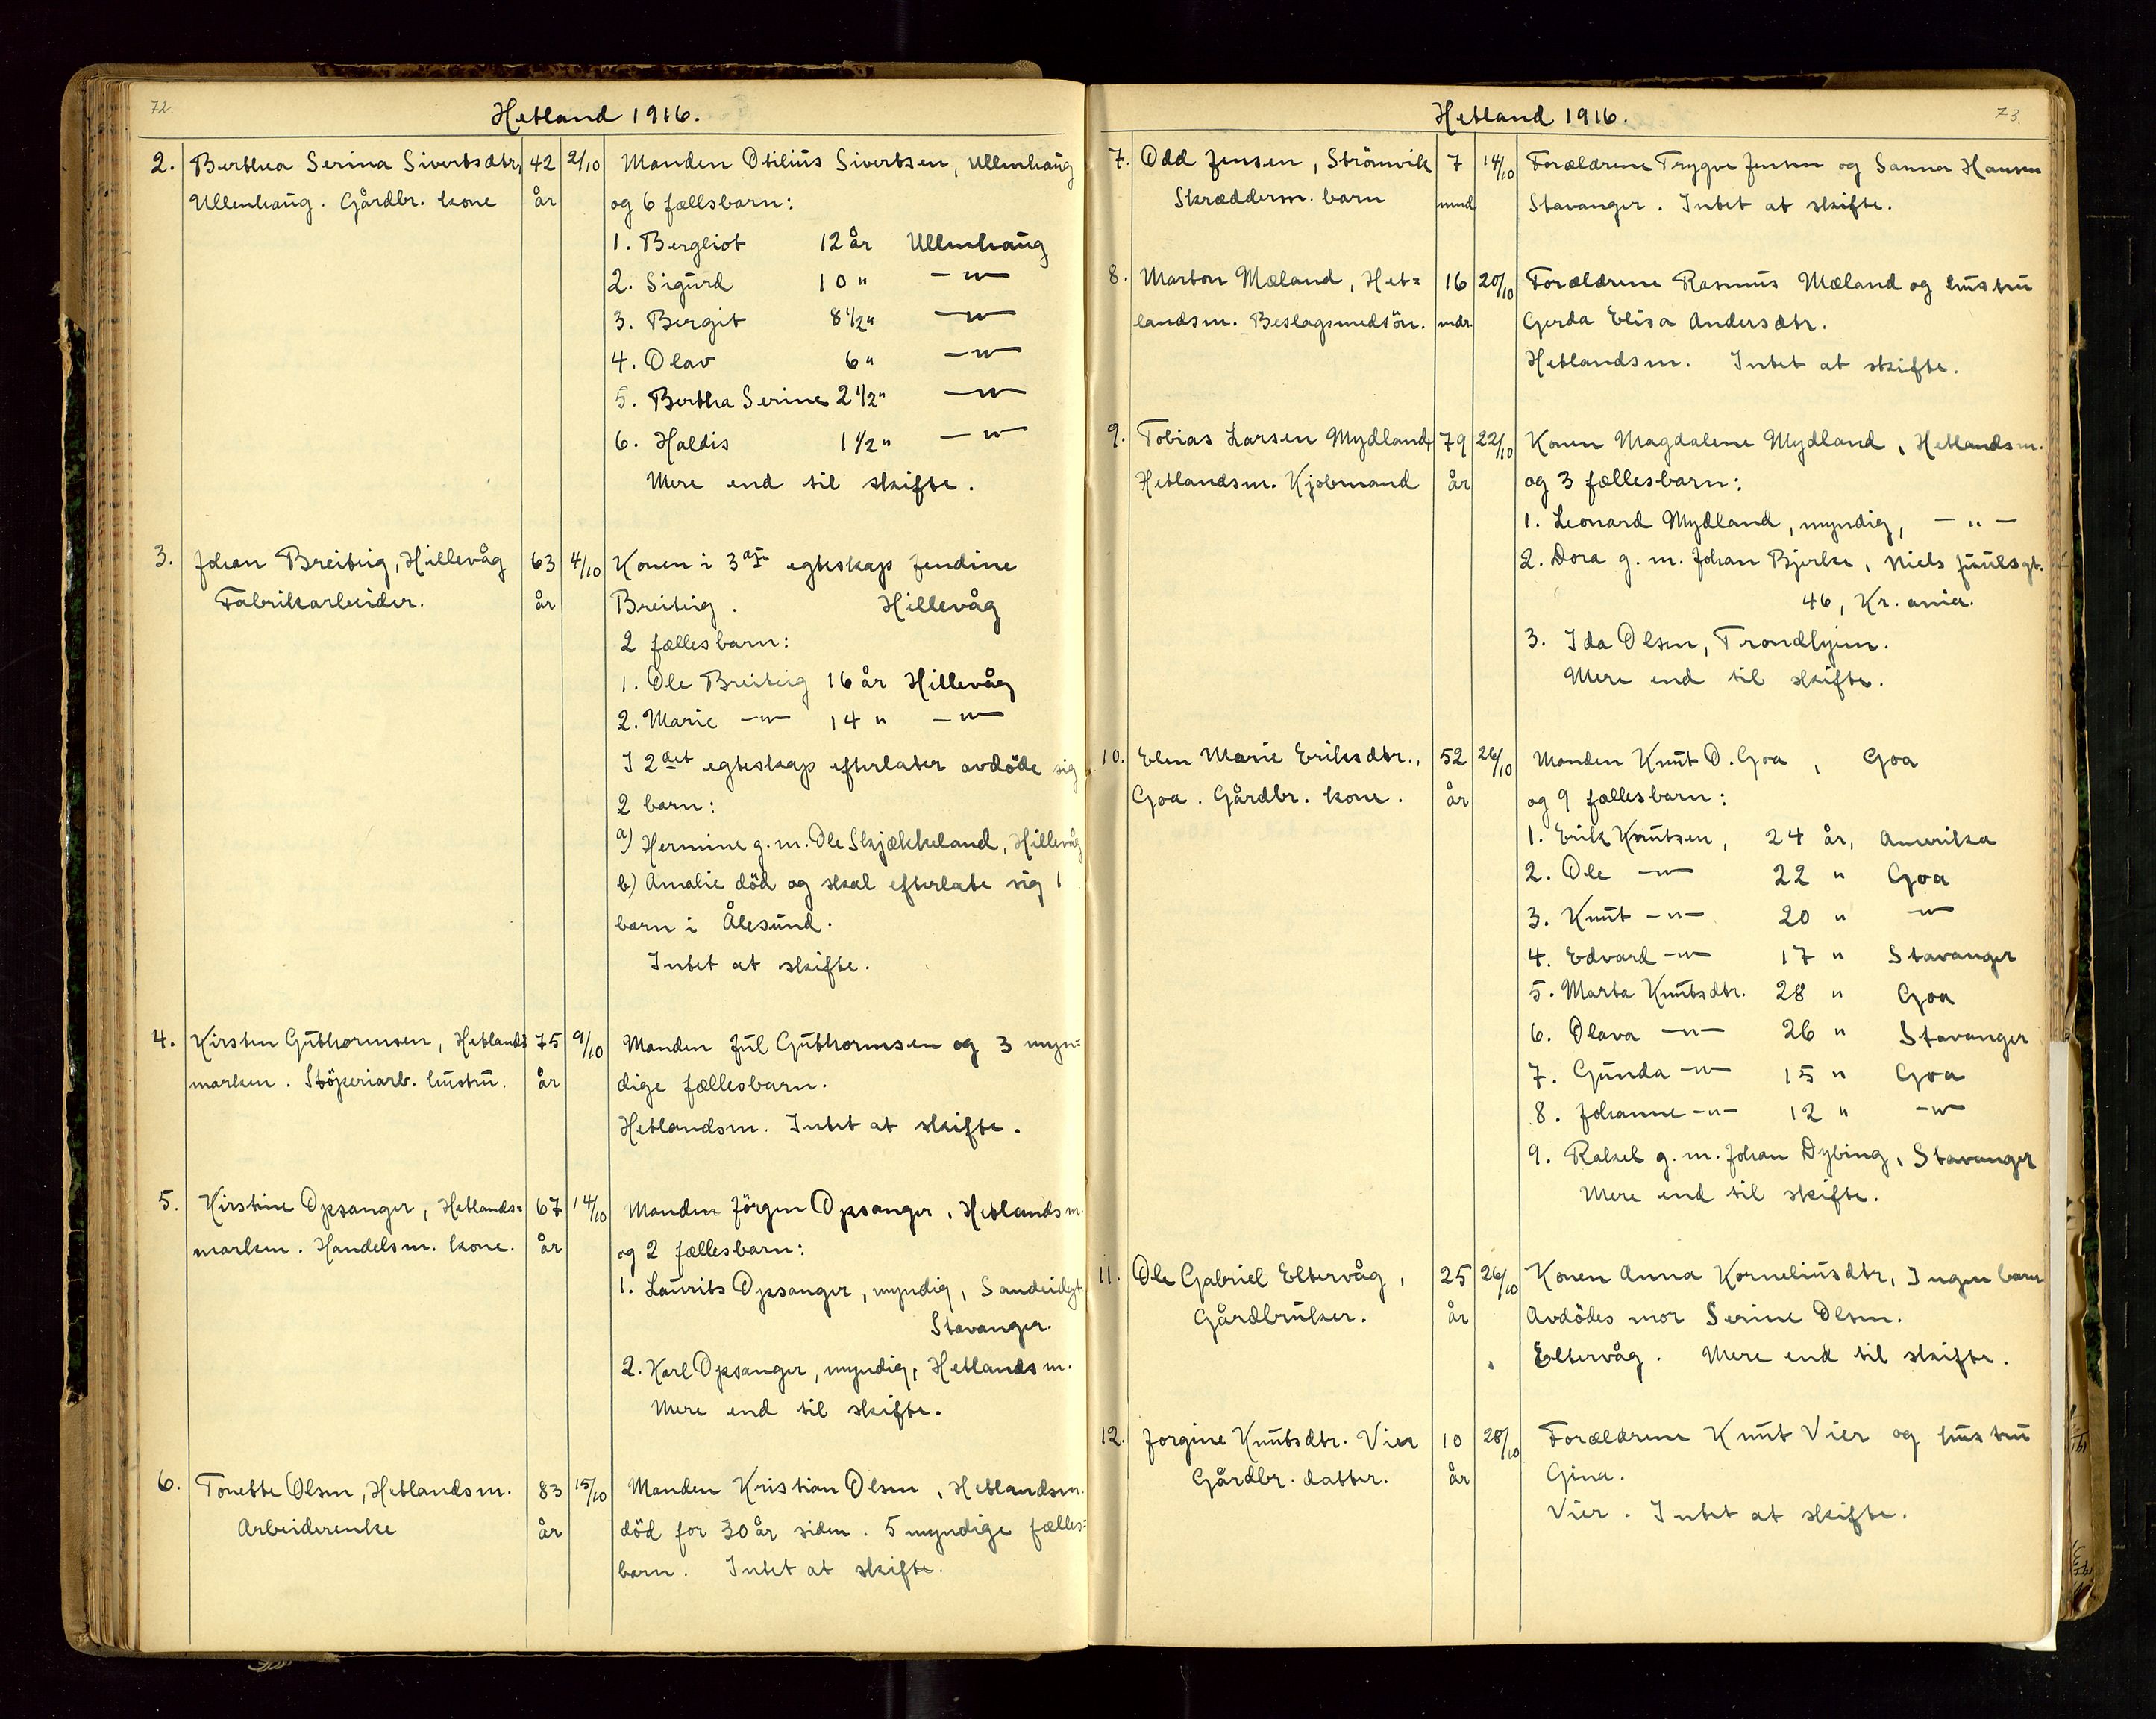 72.
Hetland 1916.
2. Berthea Serina Sivertsdtr, 42 2/10 Manden Otilius Sivertsen, Ullenhaug
Ullenhaug. Gårdbr. kone år og 6 fællsbarn:
1. Bergliot 12 år Ullenhaug
2. Sigurd 10 " —"—
3. Bergit 8 1/2 " —"—
4. Olav 6 " —"—
5. Bertha Serine 2 1/2 " —"—
6. Haldis 1 1/2 " —"—
Mere end til skifte.
3. Johan Breiteig, Hillevåg 63 4/10 Konen i 3dje egteskap Jendine
Fabrikarbeider. år Breiteig. Hillevåg
2 fællesbarn:
1. Ole Breiteig 16 år Hillevåg
2. Marie —"— 14 " —"—
I 2det egteskap efterlater avdöde sig
2 barn:
a) Hermine g. m. Ole Skjækkeland, Hillevåg
b) Amalie död og skal efterlate sig 1
barn i Ålesund.
Intet at skifte.
4. Kirsten Guthormsen, Hetlands 75 9/10 Manden Jul Guthormsen og 3 myn=
marken. Stöperiarb. hustru. år dige fællesbarn.
Hetlandsm. Intet at skifte.
5. Kirstine Opsanger, Hetlands= 67 14/10 Manden Jörgen Opsanger, Hetlandsm.
marken. Handelsm. kone. år og 2 fællesbarn:
1. Laurits Opsanger, myndig, Sandeidgt.
Stavanger.
2. Karl Opsanger, myndig, Hetlandsm.
Mere end til skifte.
6. Tonette Olsen, Hetlandsm. 83 15/10 Manden Kristian Olsen, Hetlandsm.
Arbeiderenke år död for 30 år siden. 5 myndige fælles=
barn. Intet at skifte.
Hetland 1916.
73.
7. Odd Jensen, Strömvik 7 14/10 Forældrene Trygve Jensen og Sanna Hansen
Skrædderm. barn mnd Stavanger. Intet at skifte.
8. Marton Mæland, Het= 16 20/10 Forældrene Rasmus Mæland og hustru
landsm. Beslagsmedsön. mdr. Gerda Elisa Andersdtr.
Hetlandsm. Intet at skifte.
9. Tobias Larsen Mydland, 79 22/10 Konen Magdalene Mydland, Hetlandsm.
Hetlandsm. Kjøbmand år og 3 fællesbarn:
1. Leonard Mydland, myndig, —"—
2. Dora g. m. Johan Bjerke, Niels Juulsgt.
46, Kr.ania.
3. Ida Olsen, Trondhjem.
Mere end til skifte.
10. Elen Marie Eriksdtr., 52 26/10 Manden Knut O. Goa, Goa
Goa. Gårdbr. kone. år og 9 fællesbarn:
1. Erik Knutsen, 24 år, Amerika
2. Ole —"— 22 " Goa
3. Knut —"— 20 " —"—
4. Edvard —"— 17 " Stavanger
5. Marta Knutsdtr. 28 " Goa
6. Olava —"— 26 " Stavanger
7. Gunda —"— 15 " Goa
8. Johanne —"— 12 " —"—
9. Rakel g. m. Johan Dybing, Stavanger
Mere end til skifte.
11. Ole Gabriel Eltervåg, 25 26/10 Konen Anna Korneliusdtr, Ingen barn
Gårdbruker. år Avdödes mor Serine Olsen.
Eltervåg. Mere end til skifte.
12. Jorgine Knutsdtr. Vier 10 28/10 Forældrene Knut Vier og hustru
Gårdbr. datter. år Gina.
Vier. Intet at skifte.